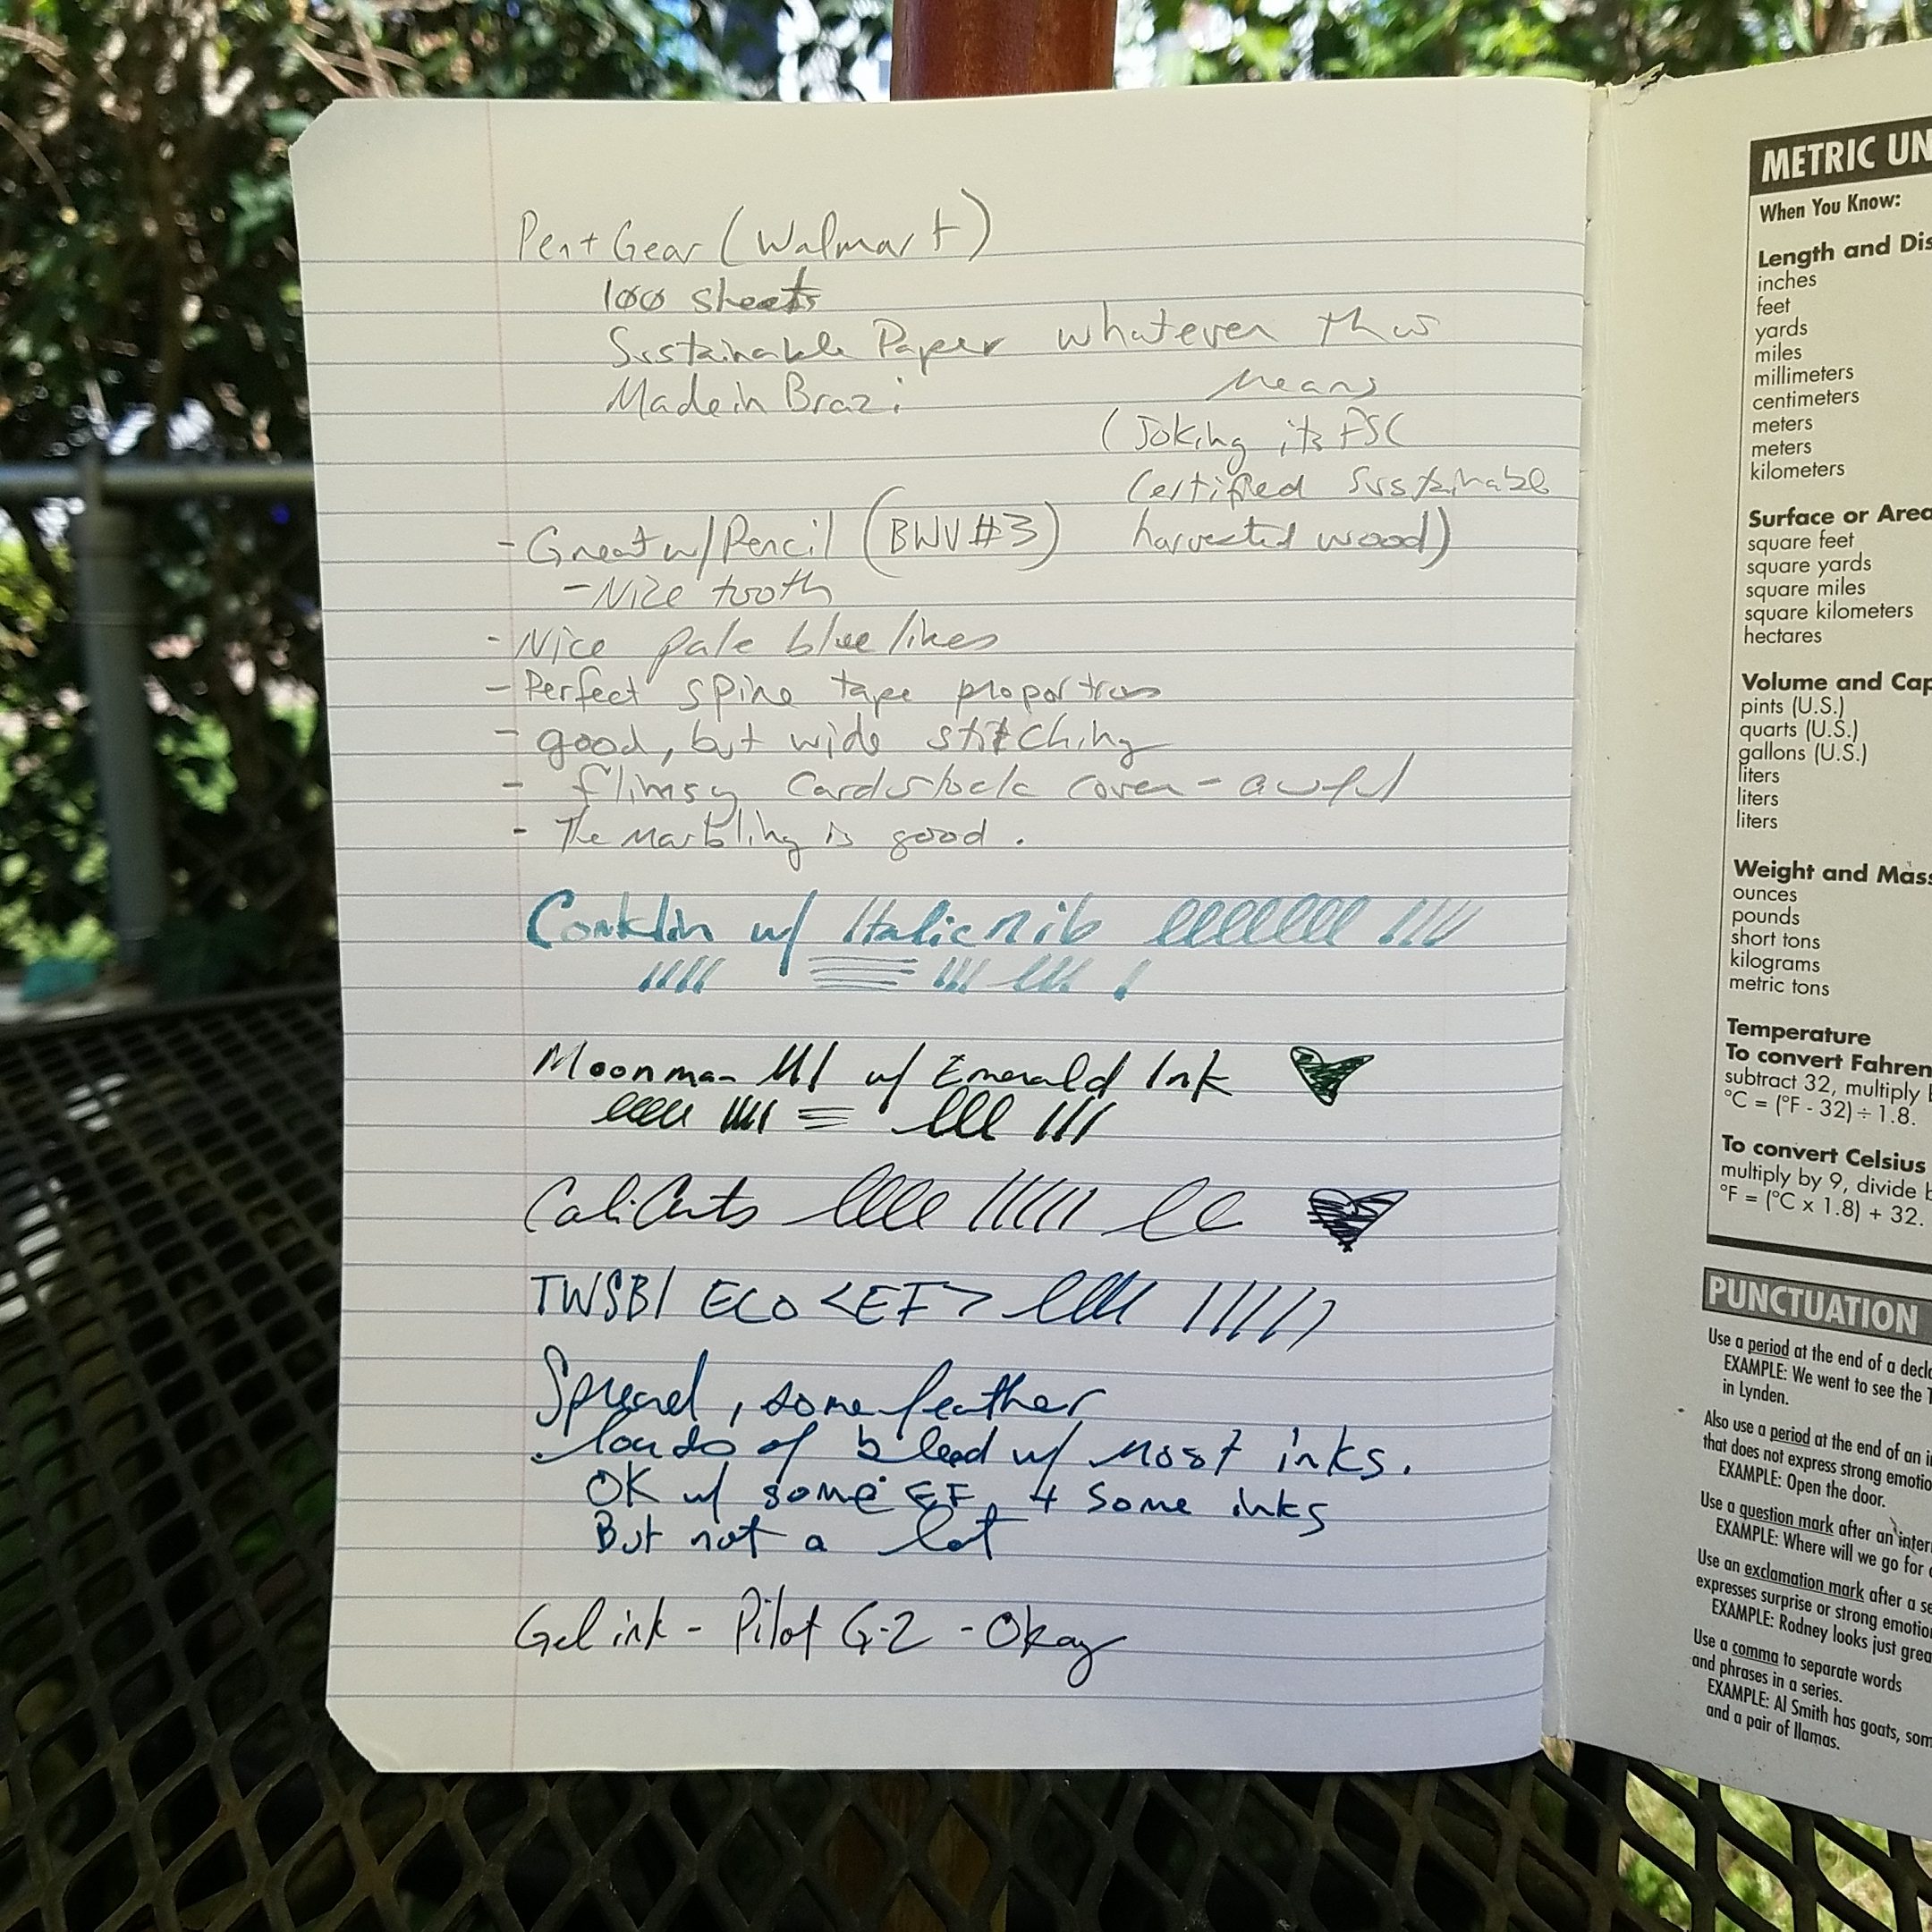 Pen+Gear (Walmart)
100 sheets
Sustainable Paper whatever this
means
Made in Brazi
(Joking its FSC
Certified Sustainable
harvested wood)
- Great w/ Pencil (BWV #3)
- Nice tooth
- Nice pale blue lines
- Perfect spine tape proportions
- good, but wide stitching
- flimsy Cardstock cover - awful
- The marbling is good.
Conklin w/ Italic nib
Moonman M1 w/ Emerald Ink
CaliArts
TWSBI ECO <EF>
Spread, some feather
loads of bleed w/ most inks.
OK w/ some EF, + some inks
But not a lot
Gel ink - Pilot G-2 - Okay
METRIC UN
When You Know:
Length and Dis
inches
feet
yards
miles
millimeters
centimeters
meters
meters
kilometers
Surface or Area
square feet
square yards
square miles
square kilometers
hectares
Volume and Cap
pints (U.S.)
quarts (U.S.)
gallons (U.S.)
liters
liters
liters
Weight and Mass
ounces
pounds
short tons
kilograms
metric tons
Temperature
To convert Fahren
subtract 32, multiply b
°C = (°F - 32) ÷ 1.8.
To convert Celsius
multiply by 9, divide b
°F = (°C x 1.8) + 32.
PUNCTUATION
Use a period at the end of a decla
EXAMPLE: We went to see the T
in Lynden.
Also use a period at the end of an i
that does not express strong emotio
EXAMPLE: Open the door.
Use a question mark after an inter
EXAMPLE: Where will we go for
Use an exclamation mark after a se
expresses surprise or strong emotio
EXAMPLE: Rodney looks just grea
Use a comma to separate words
and phrases in a series.
EXAMPLE: Al Smith has goats, som
and a pair of llamas.